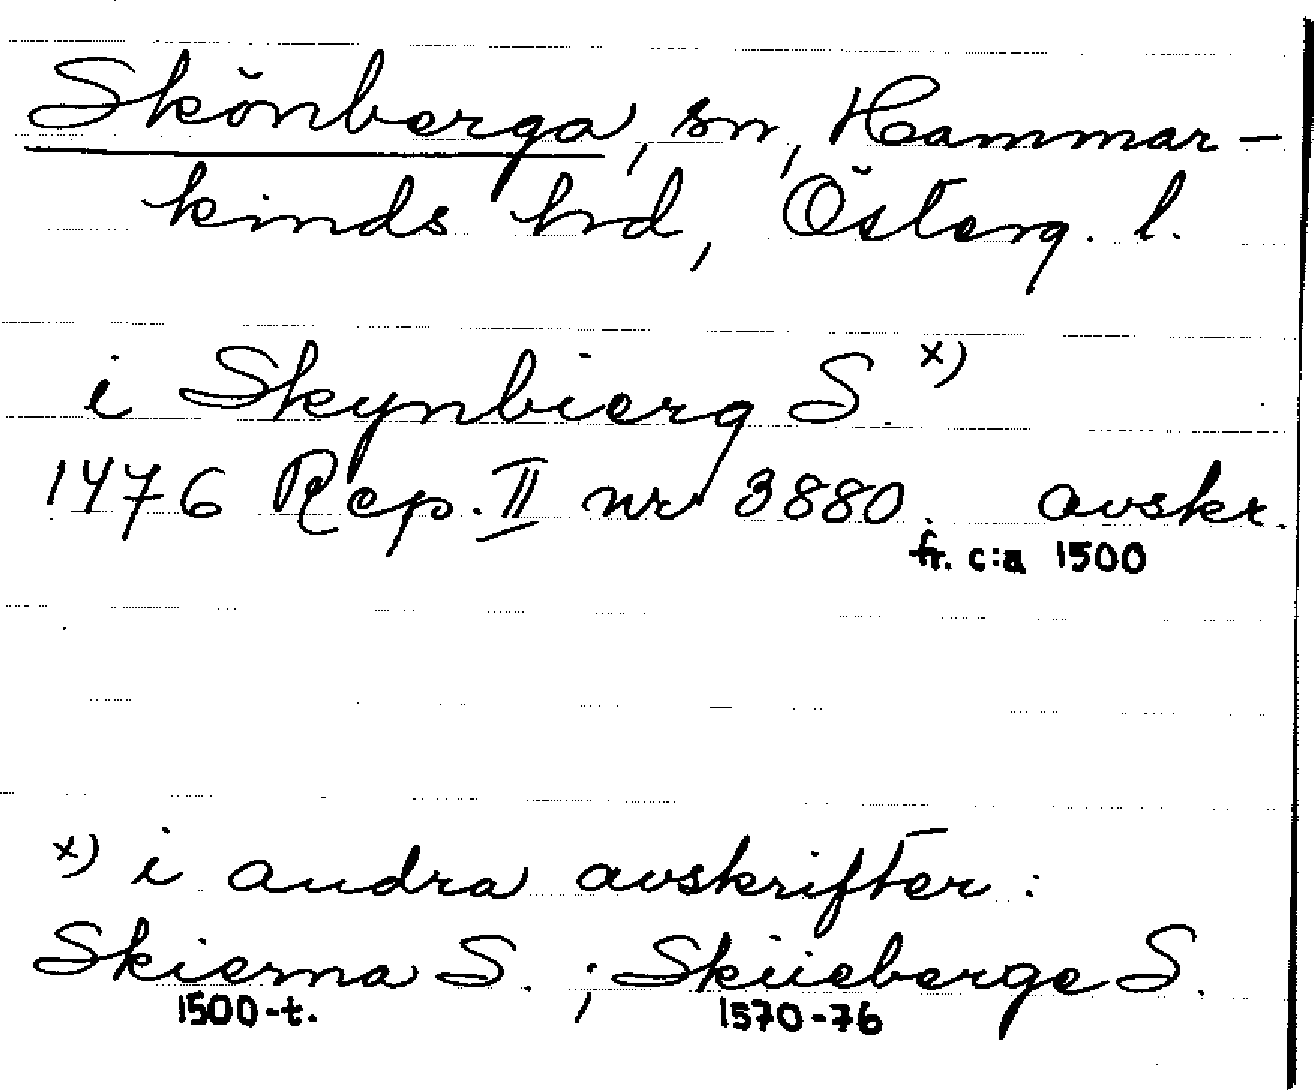 Skönberga, sn, Hammar-
kinds hd, Österg. l.
i Skynbierg S. x)
1476 Rep. II nr 3880. avskr.
fr. c:a 1500
x) i andra avskrifter:
Skierna S. ; Skiieberge S.
1500-t. 1570-76